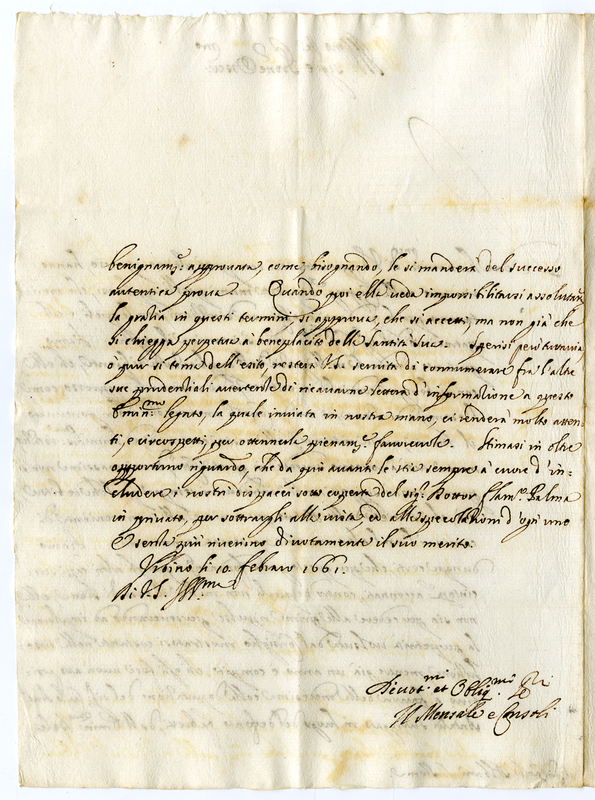 benignam.e approvata, come, bisognando, le si manderà del successo
autentica prova. Quando poi ella veda impossibilitarsi assolutam.e
la gratia in questi termini si approva, che si accetti, ma non già che
si chiegga perpetua à beneplacito della Santità Sua. Se poi
ò pur si teme dell'esito, resterà V.S. servita di connumerare fra l'altre
sue prudentiali avertenze di ricavarne lettera d'informatione a questo
Emin.mo legato, la quale inviata in nostra mano, ci renderà molto atten-
ti, e circospetti, per ottinerla pienam.e favorevole. Stimasi in oltre
opportuno riguardo, che da qui avanti le stia sempre à cuore d'in-
cludere i nostri dispacci sotto coperta del sig.r Dottor Flam.o Palma
in privato, per sottrargli alla vista, ed alle specolationi d'ogn'uno
E senza più riverimo divotamente il suo merito.
Urbino li 10 febraro 1661.
Di V.S. Ill.ma
Devot.mi et Oblig.mi
Il Confal.e e Priori